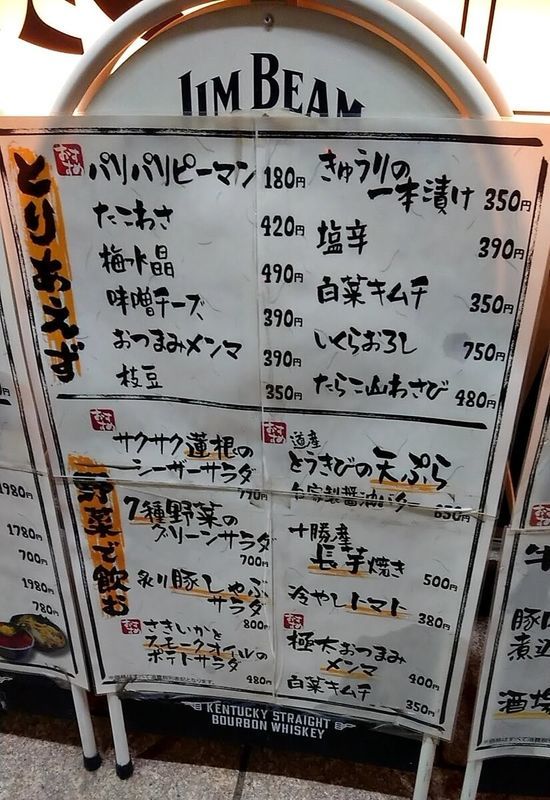 JIM BEAM
とりあえず
おすすめ
パリパリピーマン 180円
たこわさ 420円
梅水晶 490円
味噌チーズ 390円
おつまみメンマ 390円
枝豆 350円
きゅうりの
一本漬け 350円
塩辛 390円
白菜キムチ 350円
いくらおろし 750円
たらこ山わさび 480円
野菜で飲む
おすすめ
サクサク蓮根の
シーザーサラダ
770円
7種野菜の
グリーンサラダ
700円
炙り豚しゃぶ
サラダ
800円
おすすめ
さきいかと
スモークオイルの
ポテトサラダ
480円
おすすめ
道産
とうきびの天ぷら
自家製醤油バター 650円
十勝産
長芋焼き
500円
冷やしトマト
380円
おすすめ
極太おつまみ
メンマ 400円
白菜キムチ 350円
※価格はすべて消費税別表記となります。
KENTUCKY STRAIGHT
BOURBON WHISKEY
1980円
1780円
700円
1980円
780円
牛
豚
煮込
酒場